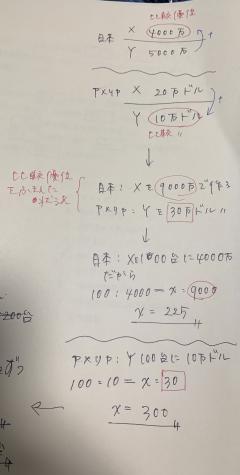 比較優位
日本 X 4000万
Y 5000万
アメリカ X 20万ドル
Y 10万ドル
比較 〃
↓
比較優位
をふまえた
日本：Xを9000万で作る
アメリカ：Yを30万ドル 〃
↓
日本：Xは100台に4000万
だから
100：4000＝x：9000
x＝225
アメリカ：Y100台に10万ドル
100＝10＝x：30
x＝300
200台